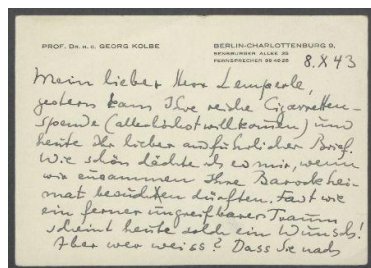 PROF. DR. H. C. GEORG KOLBE
BERLIN-CHARLOTTENBURG 9,
SENSBURGER ALLEE 25
FERNSPRECHER
8. X 43
Mein lieber Herr Lemperle,
gestern kam Ihre reiche Cigaretten-
spende (allerhöchst willkommen) und
heute Ihr lieber ausführlicher Brief.
Wie schön dächte ich es mir, wenn
wir zusammen Ihre Barockhei-
mat besuchen dürften. Fast wie
ein ferner ungreifbarer Traum
scheint heute solch ein Wunsch!
Aber wer weiss? Dass Sie nach